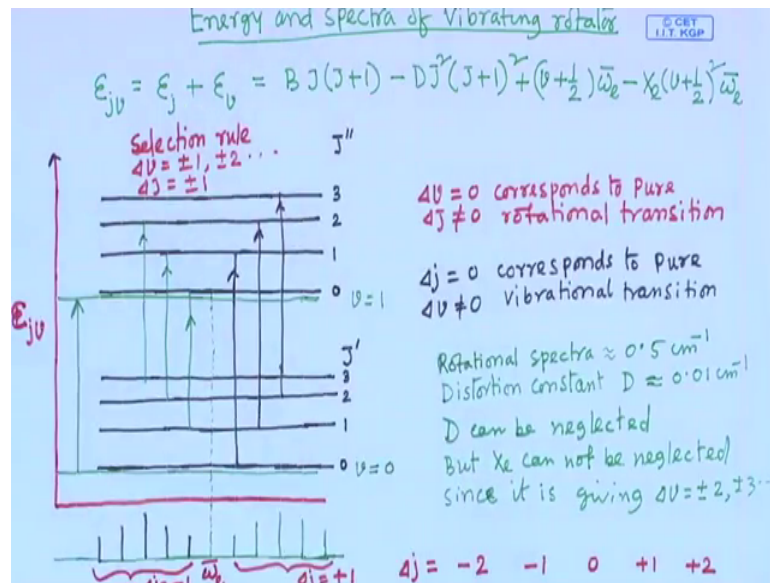 Energy and spectra of vibrating rotator
© CET
I.I.T. KGP
εjυ = εj + ευ = B J(J+1) - DJ²(J+1)² + (υ+½)ω̄e - Xe(υ+½)²ω̄e
Selection rule
Δυ = ±1, ±2 ...
ΔJ = ±1
J''
3
2
1
0 υ=1
εjυ
J'
3
2
1
0 υ=0
Δυ = 0 corresponds to pure
ΔJ ≠ 0 rotational transition
Δj = 0 corresponds to pure
Δυ ≠ 0 vibrational transition
Rotational spectra ≈ 0.5 cm⁻¹
Distortion constant D ≈ 0.01 cm⁻¹
D can be neglected
But Xe can not be neglected
since it is giving Δυ = ±2, ±3 ..
ω̄e
Δj = +1
Δj = -2 -1 0 +1 +2